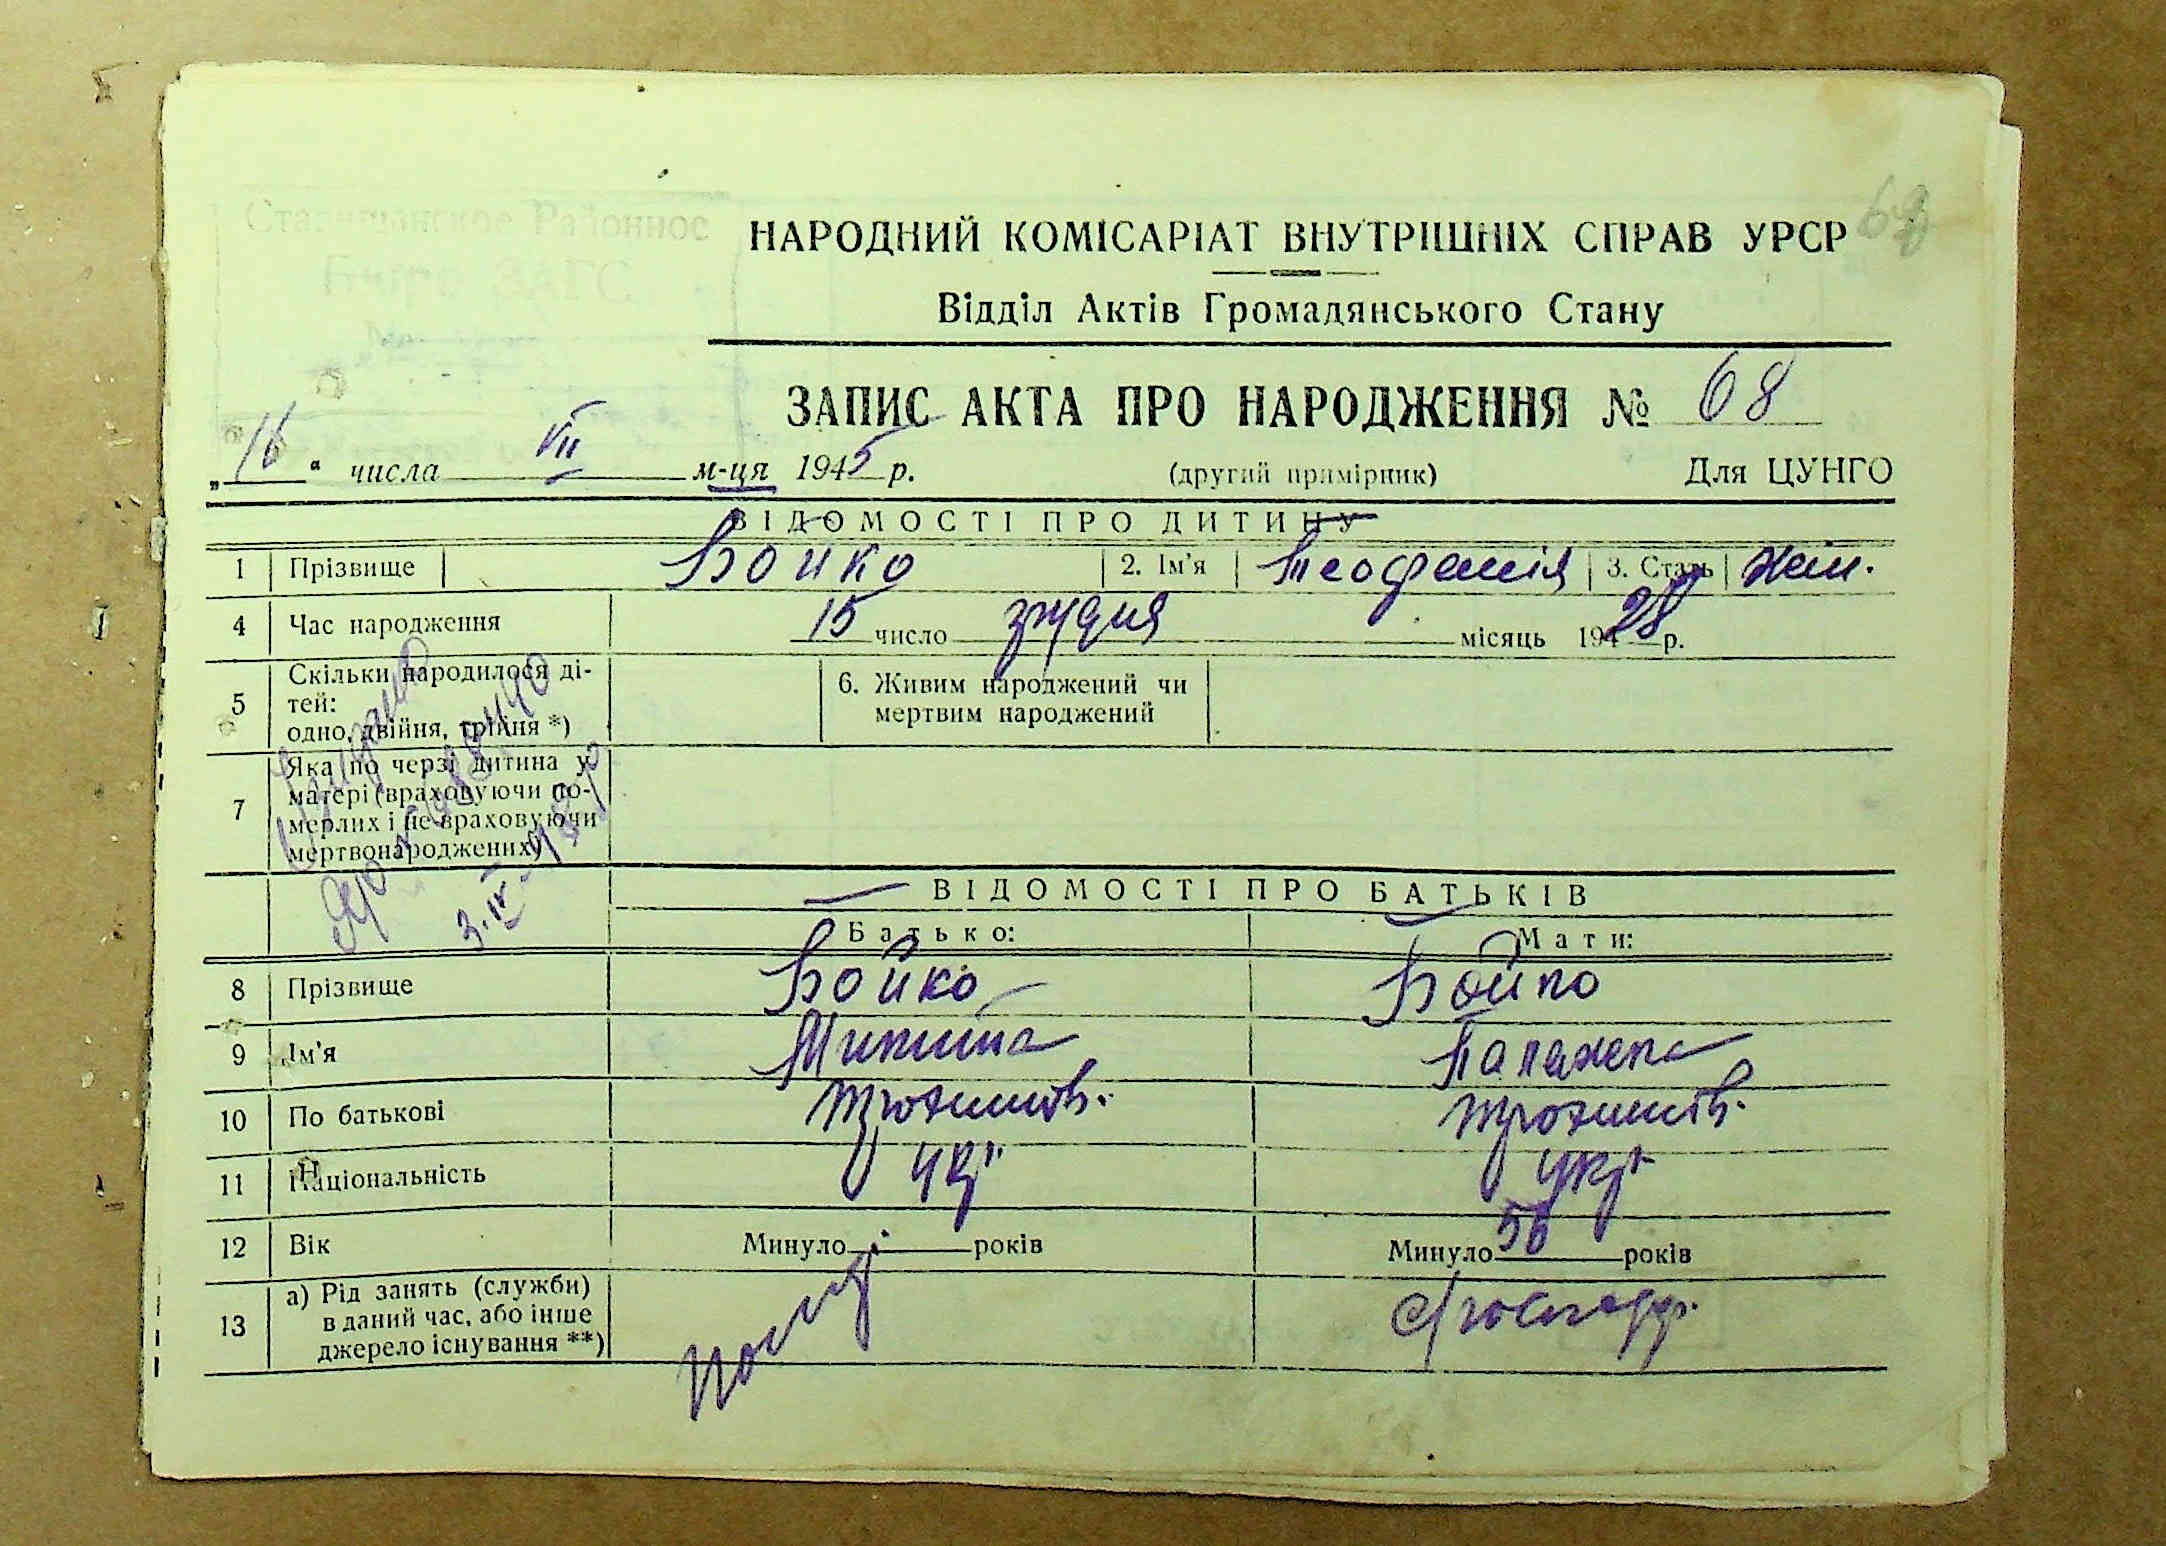 68
НАРОДНИЙ КОМІСАРІАТ ВНУТРІШНІХ СПРАВ УРСР
Відділ Актів Громадянського Стану
ЗАПИС АКТА ПРО НАРОДЖЕННЯ № 68
„16“ числа VII м-ця 1945 р. (другий примірник) Для ЦУНГО
ВІДОМОСТІ ПРО ДИТИНУ
1 Прізвище Бойко 2. Ім'я Теофанія 3. Стать жін.
4 Час народження 15 число грудня місяць 1928 р.
5 Скільки народилося ді-
тей:
одно, двійня, трійня *)
6. Живим народжений чи
мертвим народжений
7 Яка по черзі дитина у
матері (враховуючи по-
мерлих і не враховуючи
мертвонароджених)
ВІДОМОСТІ ПРО БАТЬКІВ
Батько: Мати:
8 Прізвище Бойко Бойко
9 Ім'я Микита Палажка
10 По батькові Трохимів. Трохимів.
11 Національність укр. укр.
12 Вік Минуло років Минуло 56 років
13 а) Рід занять (служби)
в даний час, або інше
джерело існування **)